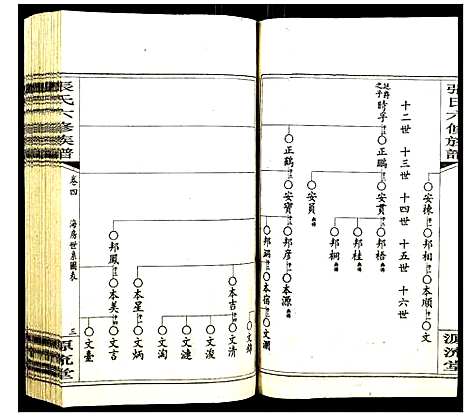 張氏六修族譜
源流堂
安棟
邦相
本順
文
十二世
十三世
十四世
十五世
十六世
廷爵之子
時孚
正鵬
安貫
邦梧
邦桂
邦桐
安貝
正鶴
安寶
邦彥
本源
本宿
文瀾
文清
本吉
文浚
文漣
文淘
本星
文炳
邦鳳
本美
文言
文臺
張氏六修族譜
卷四
海房世系圖表
三
源流堂